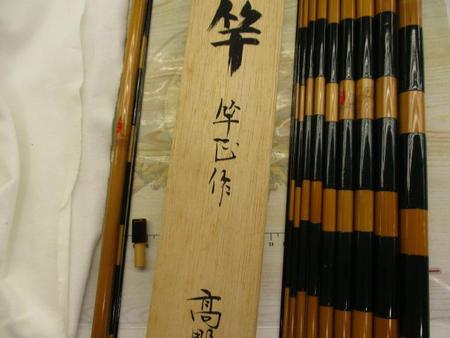 竿
竿正作
高野